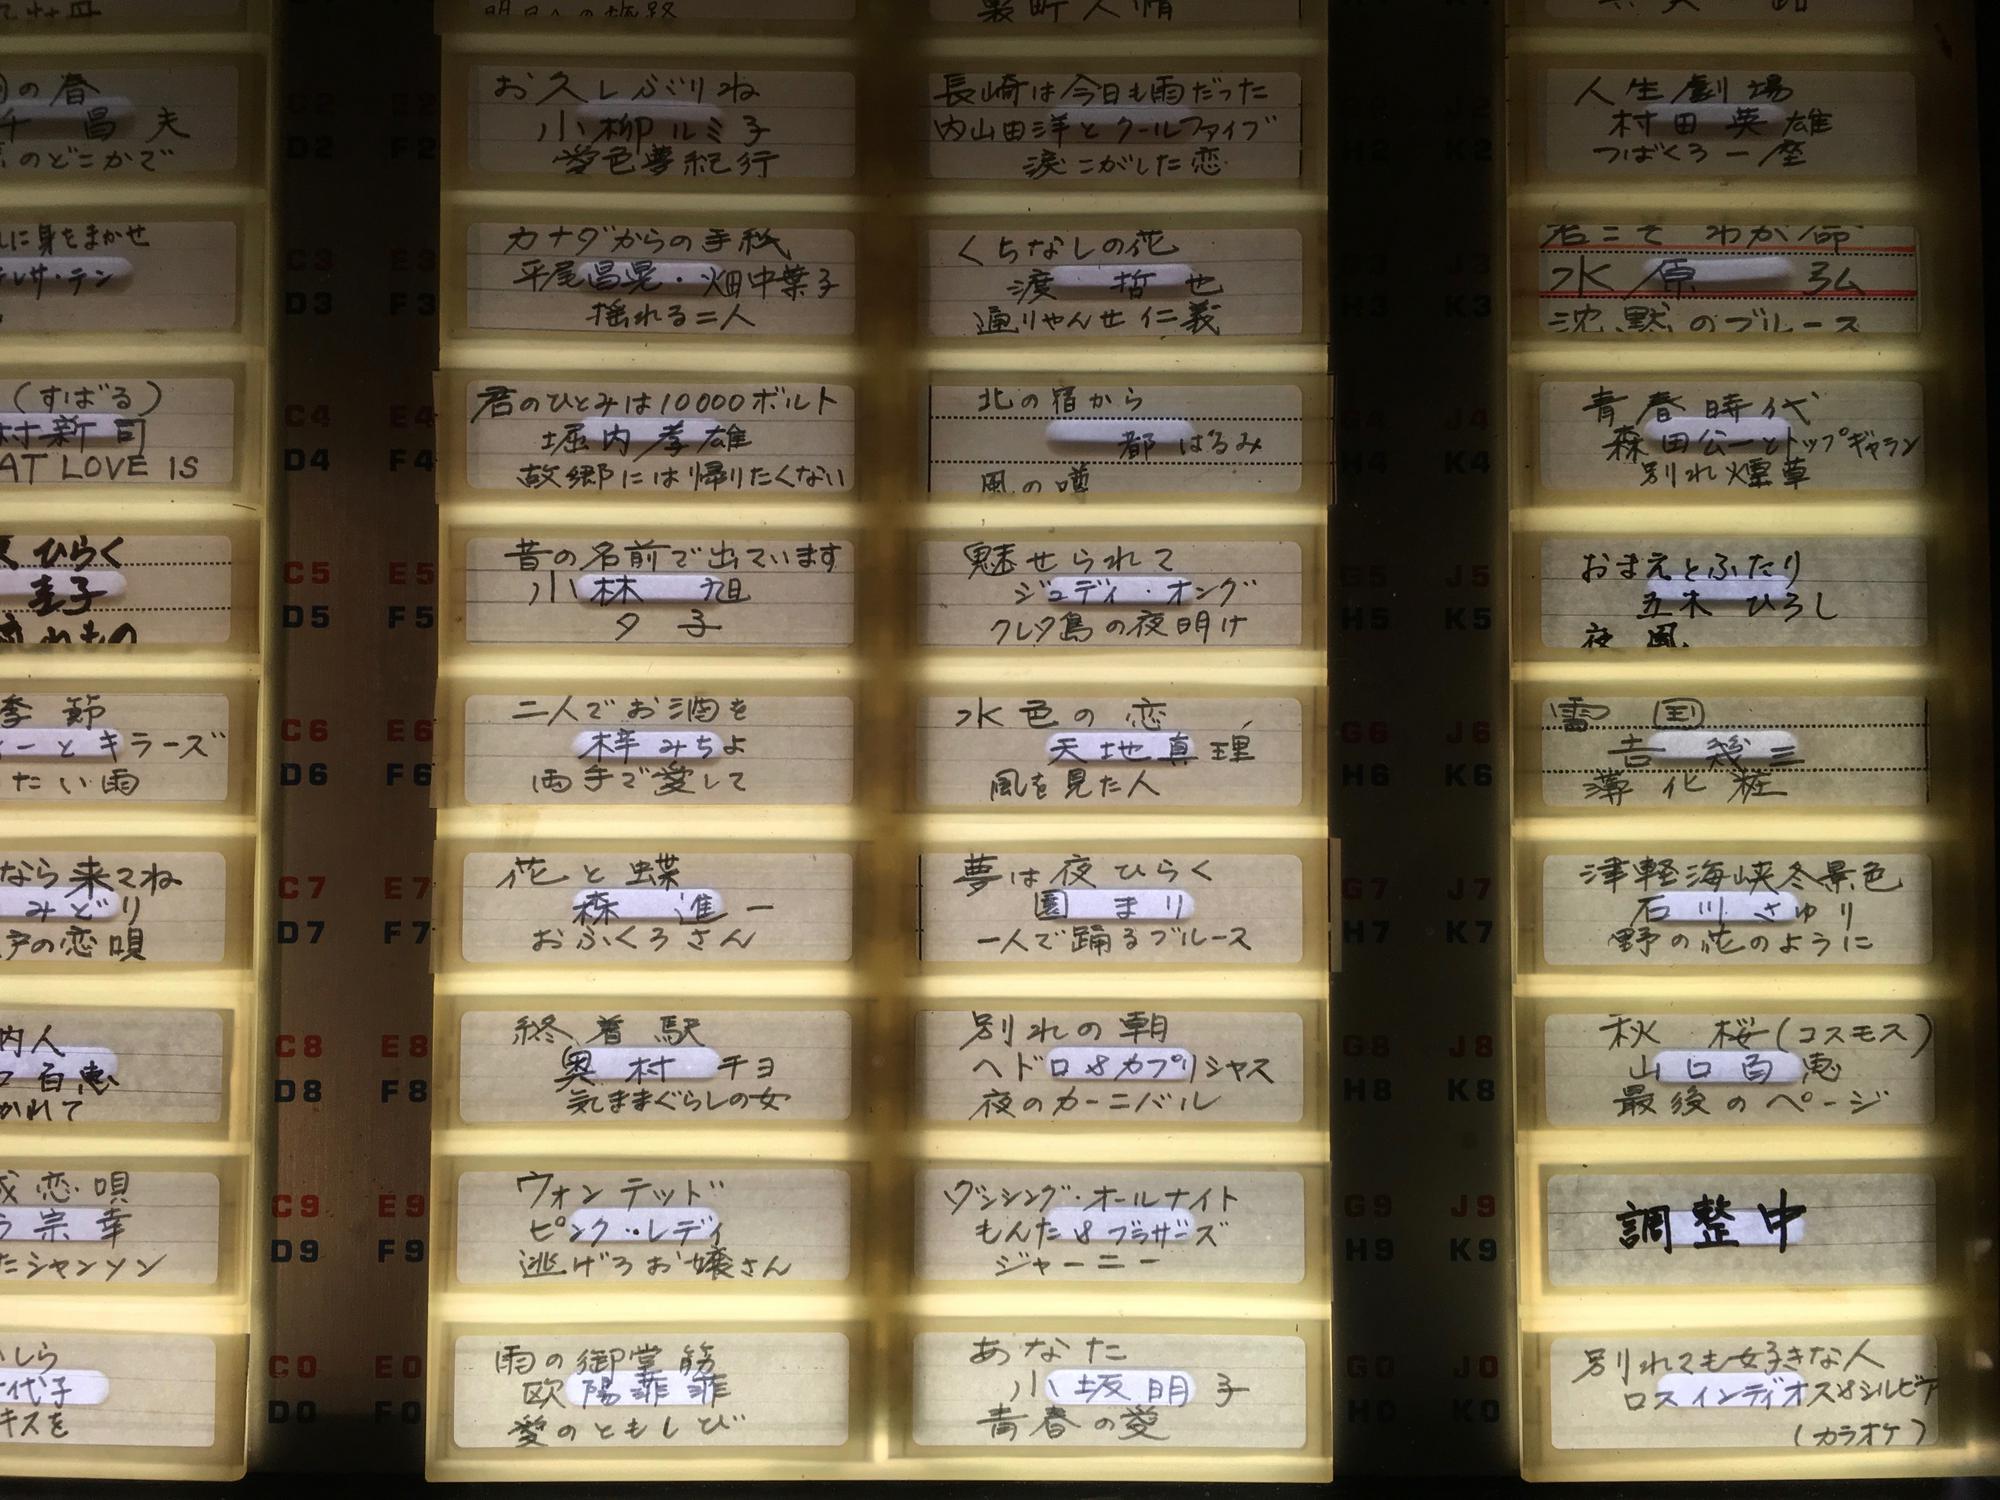 の春
千 昌夫
のどこかで
に身をまかせ
テレサ・テン
(すばる)
村新司
AT LOVE IS
ひらく
圭子
季節
ーとキラーズ
たい雨
なら来てね
みどり
戸の恋唄
内人
口百恵
かれて
恋唄
宗幸
たシャンソン
しら
代子
キスを
C2 E2
D2 F2
C3 E3
D3 F3
C4 E4
D4 F4
C5 E5
D5 F5
C6 E6
D6 F6
C7 E7
D7 F7
C8 E8
D8 F8
C9 E9
D9 F9
C0 E0
D0 F0
お久しぶりね
小柳ルミ子
愛色夢紀行
カナダからの手紙
平尾昌晃・畑中葉子
揺れる二人
君のひとみは10000ボルト
堀内孝雄
故郷には帰りたくない
昔の名前で出ています
小林 旭
夕子
二人でお酒を
梓みちよ
両手で愛して
花と蝶
森 進一
おふくろさん
終着駅
奥村チヨ
気ままぐらしの女
ウォンテッド
ピンク・レディ
逃げろお嬢さん
雨の御堂筋
欧陽菲菲
愛のともしび
裏町人情
長崎は今日も雨だった
内山田洋とクールファイブ
涙こがした恋
くちなしの花
渡 哲也
通りゃんせ仁義
北の宿から
都はるみ
風の噂
魅せられて
ジュディ・オング
クレタ島の夜明け
水色の恋
天地真理
風を見た人
夢は夜ひらく
園まり
一人で踊るブルース
別れの朝
ヘドロ&カプリシャス
夜のカーニバル
ダンシング・オールナイト
もんた&ブラザーズ
ジャーニー
あなた
小坂明子
青春の愛
J2
H2 K2
J3
H3 K3
G4 J4
H4 K4
G5 J5
H5 K5
G6 J6
H6 K6
G7 J7
H7 K7
G8 J8
H8 K8
G9 J9
H9 K9
G0 J0
H0 K0
人生劇場
村田英雄
つばくろ一座
君こそ わが命
水原 弘
沈黙のブルース
青春時代
森田公一とトップギャラン
別れ煙草
おまえとふたり
五木ひろし
夜風
雪国
吉 幾三
薄化粧
津軽海峡冬景色
石川さゆり
野の花のように
秋桜(コスモス)
山口百恵
最後のページ
調整中
別れても好きな人
ロスインディオス&シルビア
(カラオケ)